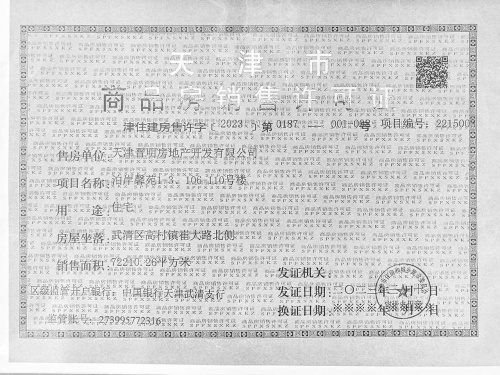 天津市
商品房销售许可证
津住建房售许字〔2023〕第0187 — 001-003号 项目编号:2215008
售房单位:天津首明房地产开发有限公司
项目名称:泊屿馨苑1-3、106-110号楼
用途:住宅
房屋坐落:武清区高村镇崔大路北侧
销售面积:72210.26平方米
发证机关:
区级监管开户银行:中国银行天津武清支行
发证日期:二〇二三年 月十 日
换证日期:※※※※年※月※日
监管账号:273995772316